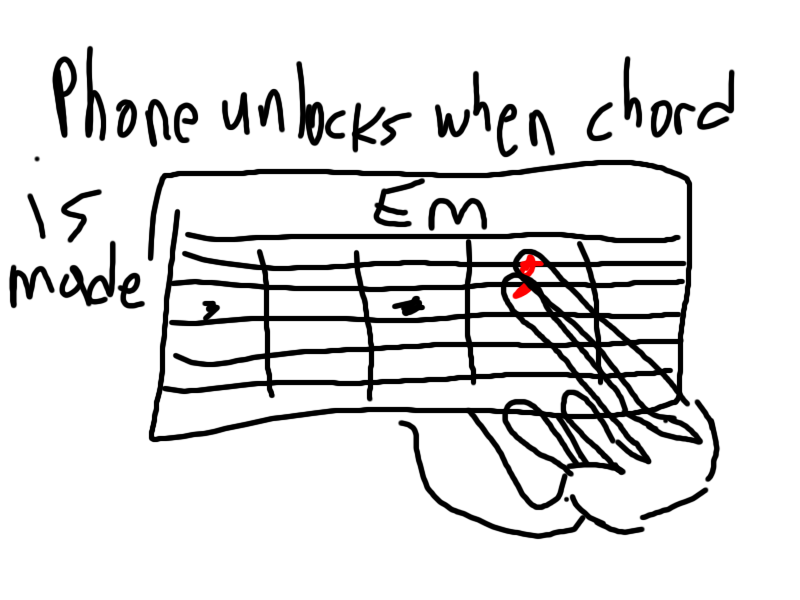 Phone unlocks when chord
is
made
Em